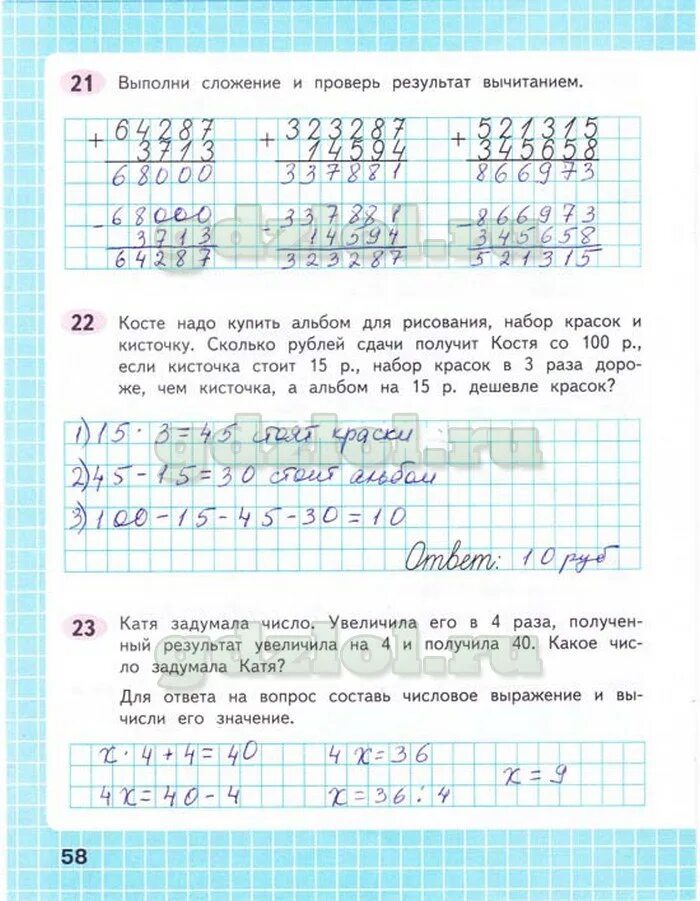 21 Выполни сложение и проверь результат вычитанием.
+ 64287 + 323287 + 521315
3713 14594 345658
68000 337881 866973
- 68000 - 337881 - 866973
3713 14594 345658
64287 323287 521315
gdzlol.ru
22 Косте надо купить альбом для рисования, набор красок и
кисточку. Сколько рублей сдачи получит Костя со 100 р.,
если кисточка стоит 15 р., набор красок в 3 раза доро-
же, чем кисточка, а альбом на 15 р. дешевле красок?
1) 15 · 3 = 45 стоят краски
gdzlol.ru
2) 45 - 15 = 30 стоит альбом
3) 100 - 15 - 45 - 30 = 10
Ответ: 10 руб
23 Катя задумала число. Увеличила его в 4 раза, получен-
ный результат увеличила на 4 и получила 40. Какое чис-
ло задумала Катя?
gdzlol.ru
Для ответа на вопрос составь числовое выражение и вы-
числи его значение.
x · 4 + 4 = 40 4 x = 36
x = 9
4 x = 40 - 4 x = 36 : 4
58